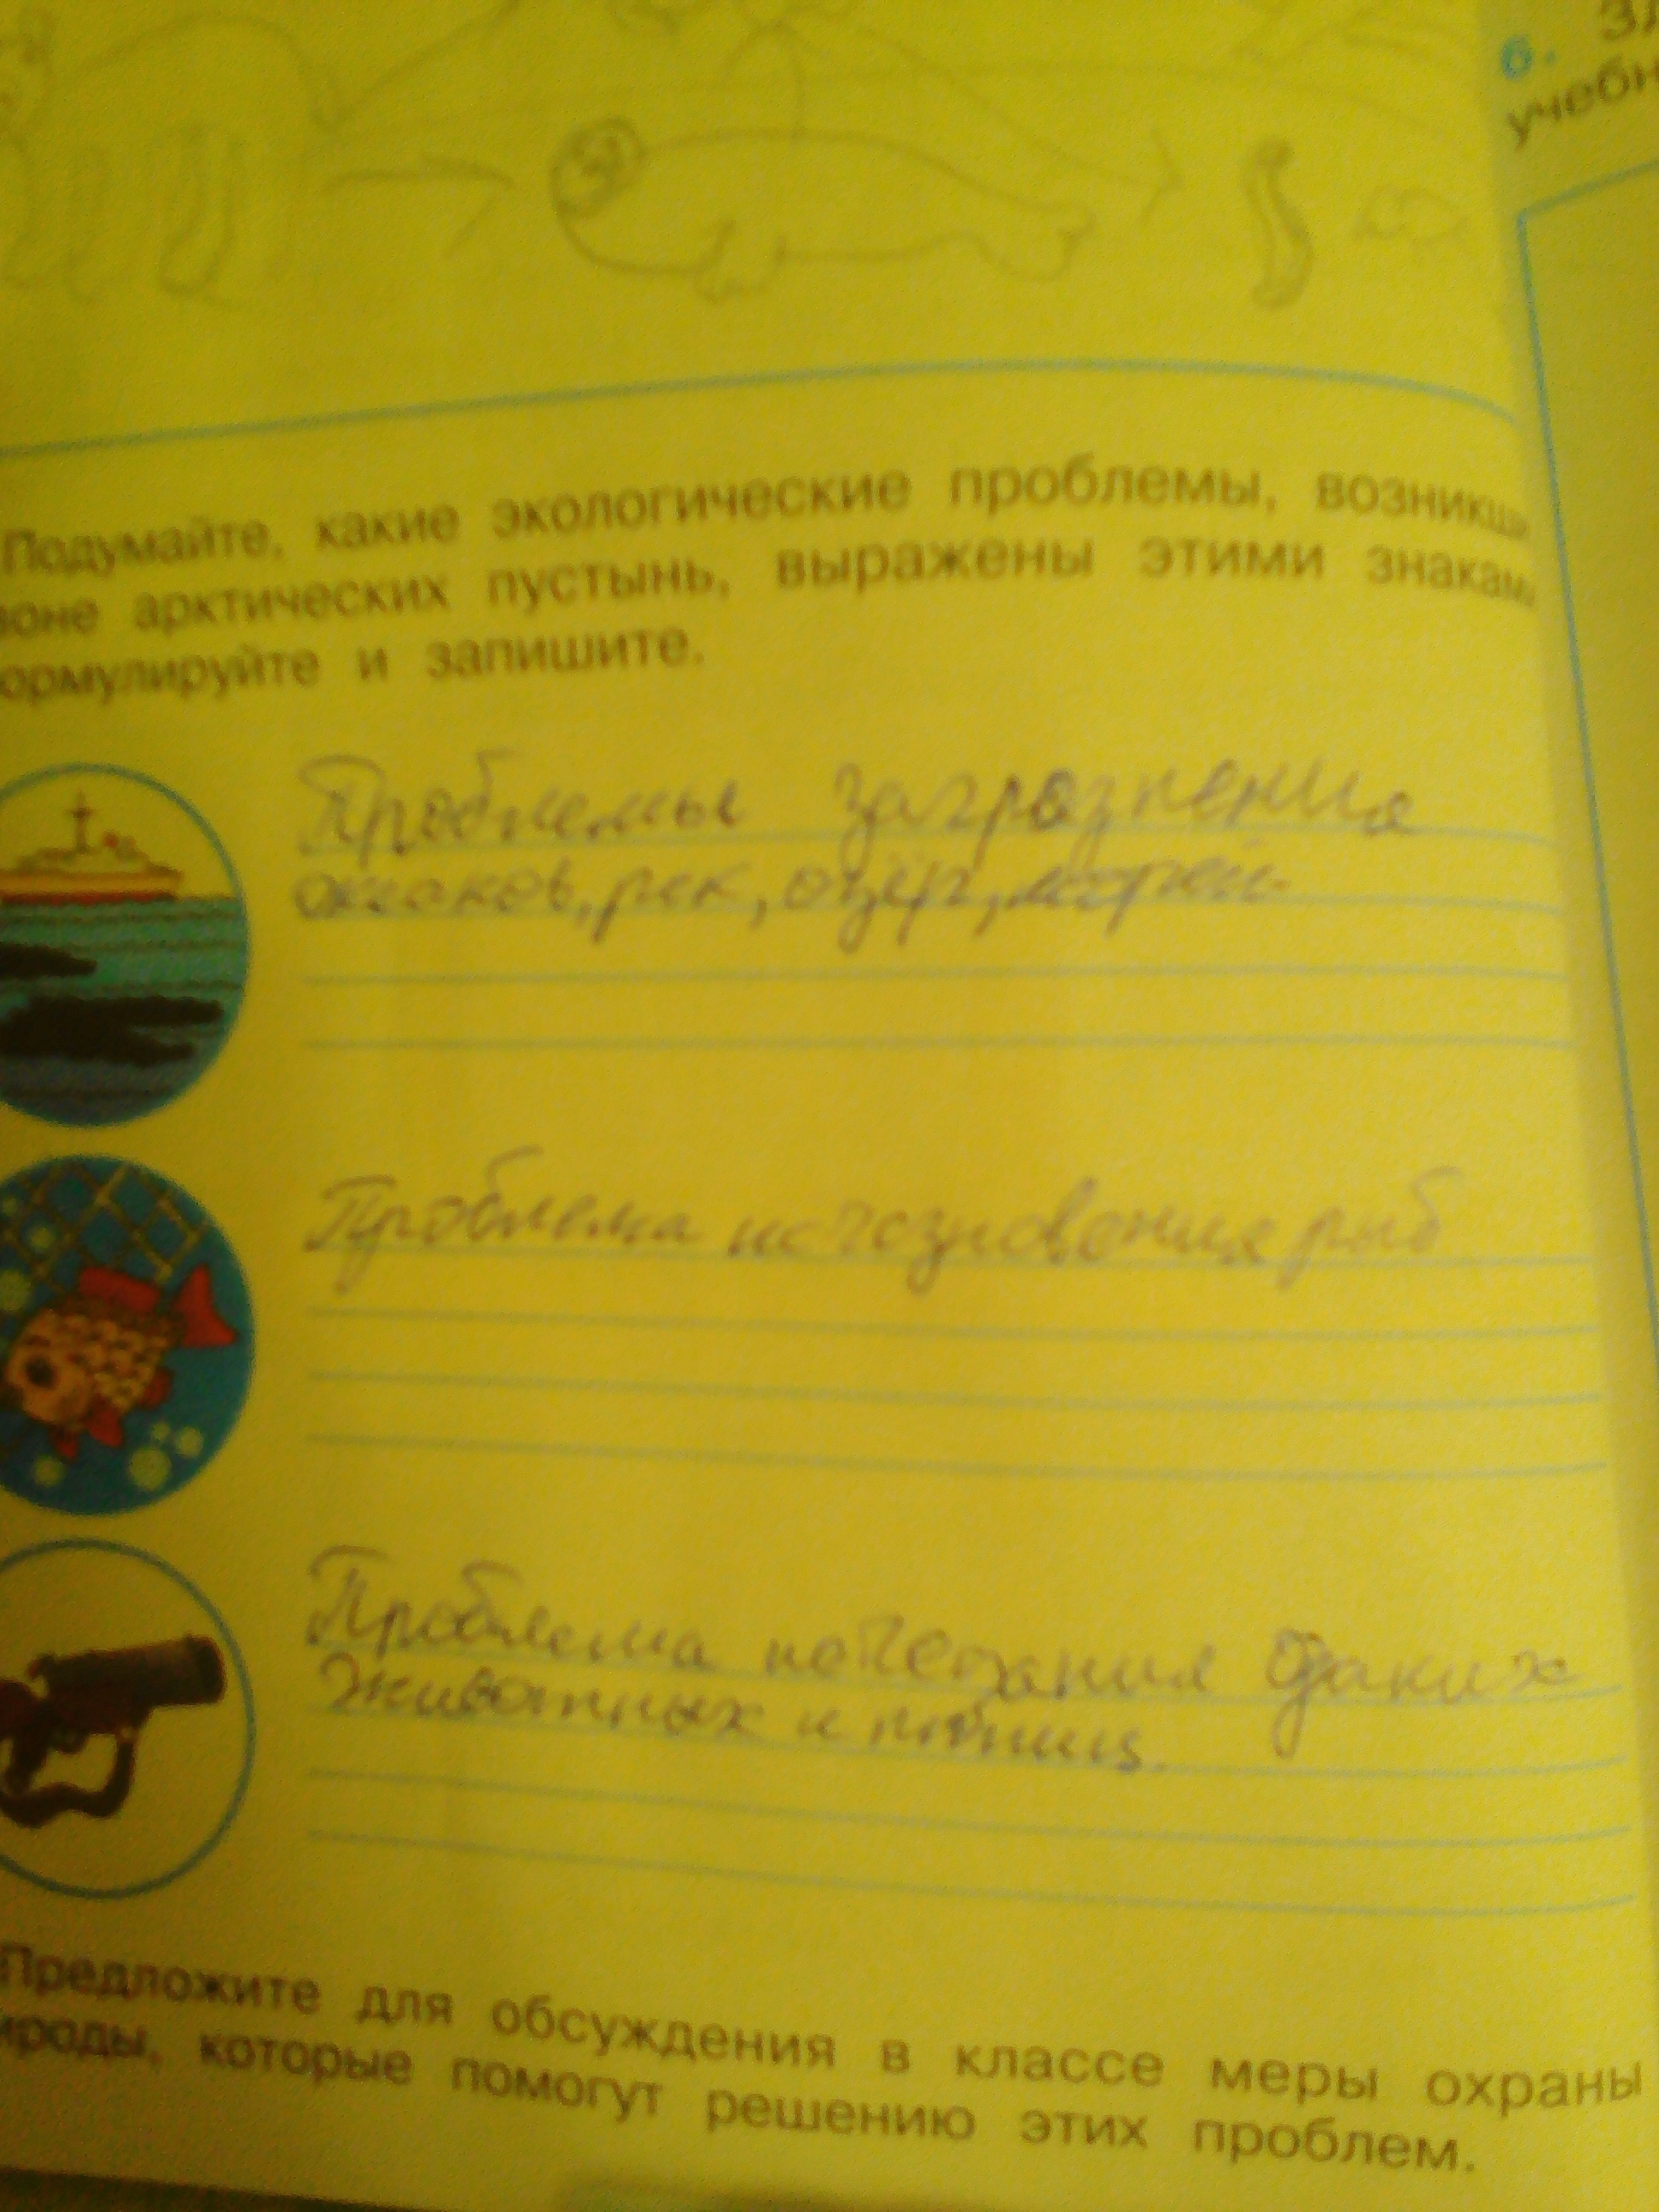 6. ЗА
учебн
Подумайте, какие экологические проблемы, возникши
зоне арктических пустынь, выражены этими знакам
ормулируйте и запишите.
Проблемы загрязнения
океанов, рек, озёр, морей.
Проблема исчезновения рыб
Проблема исчезания диких
Животных и птиц.
Предложите для обсуждения в классе меры охраны
ироды, которые помогут решению этих проблем.